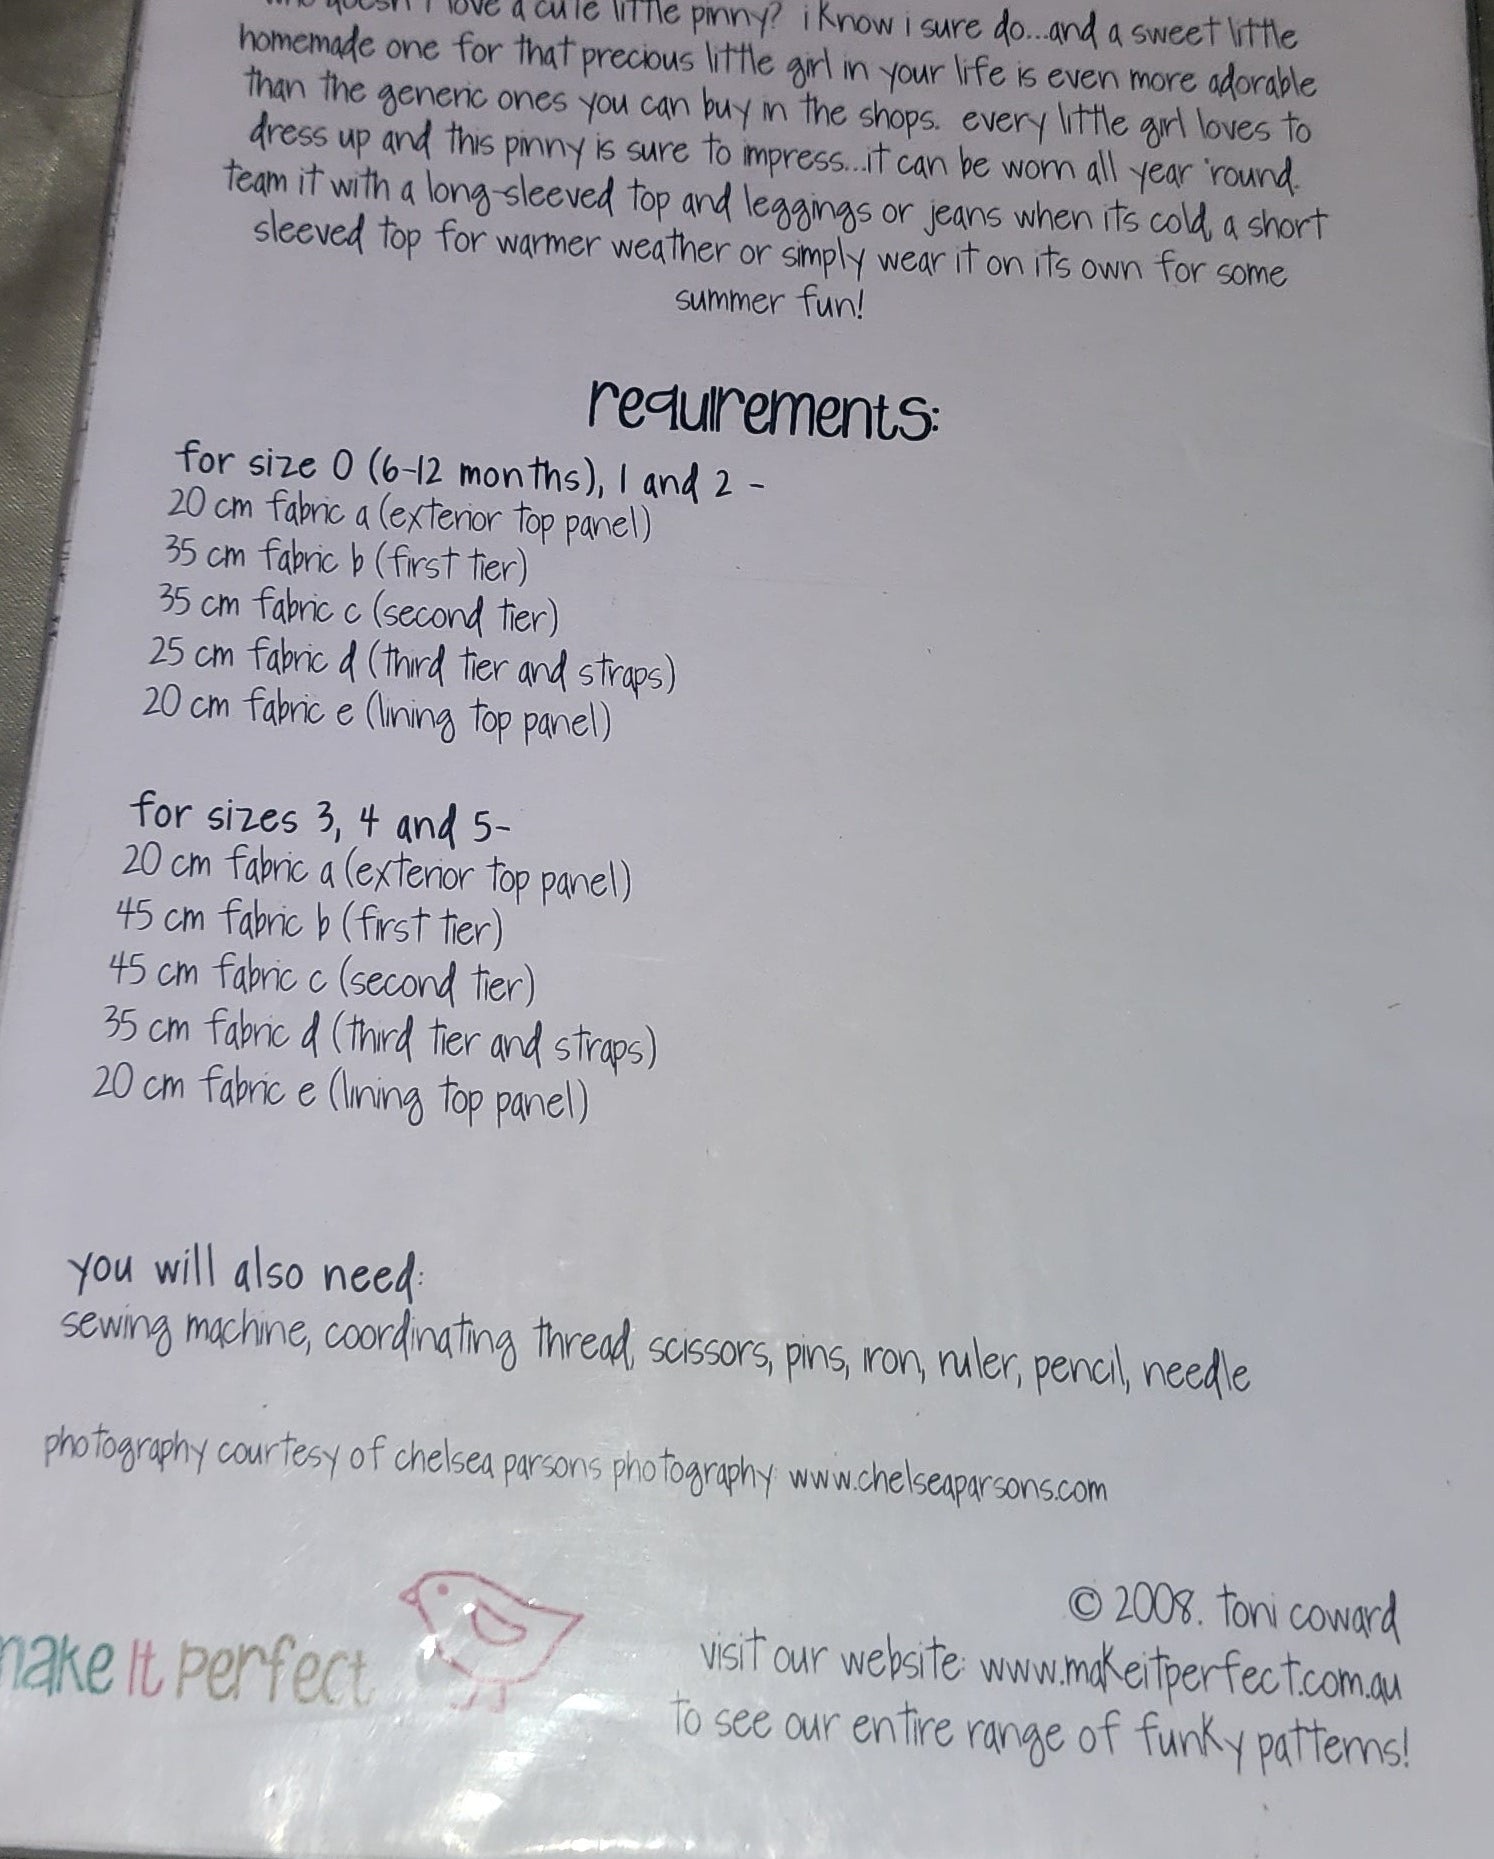 who doesn't love a cute little pinny? i know i sure do...and a sweet little
homemade one for that precious little girl in your life is even more adorable
than the generic ones you can buy in the shops. every little girl loves to
dress up and this pinny is sure to impress...it can be worn all year 'round.
team it with a long-sleeved top and leggings or jeans when its cold, a short
sleeved top for warmer weather or simply wear it on its own for some
summer fun!
requirements:
for size 0 (6-12 months), 1 and 2 -
20 cm fabric a (exterior top panel)
35 cm fabric b (first tier)
35 cm fabric c (second tier)
25 cm fabric d (third tier and straps)
20 cm fabric e (lining top panel)
for sizes 3, 4 and 5-
20 cm fabric a (exterior top panel)
45 cm fabric b (first tier)
45 cm fabric c (second tier)
35 cm fabric d (third tier and straps)
20 cm fabric e (lining top panel)
you will also need:
sewing machine, coordinating thread, scissors, pins, iron, ruler, pencil, needle
photography courtesy of chelsea parsons photography: www.chelseaparsons.com
make it perfect
© 2008. toni coward
visit our website: www.makeitperfect.com.au
to see our entire range of funky patterns!